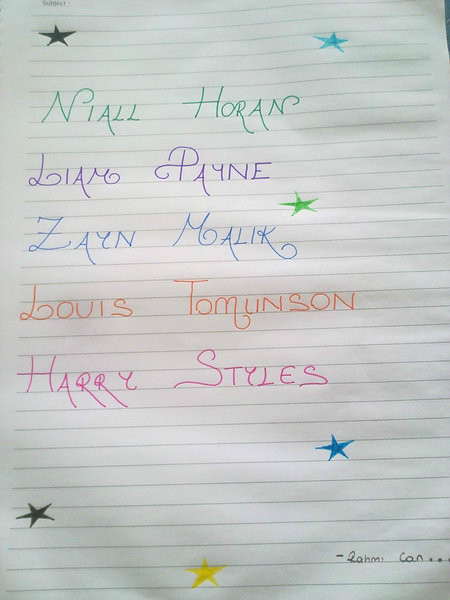 Subject :
NIALL HORAN
LIAM PAYNE
ZAYN MALIK
LOUIS TOMLINSON
HARRY STYLES
Can...